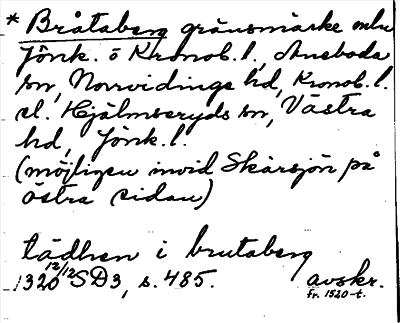 * Bråtaberg gränsmärke mln
Jönk. o Kronob. l., Aneboda
sn, Norrvidinge hd, Kronob. l.
el. Hjälmseryds sn, Västra
hd, Jönk. l.
(möjligen invid Skärsjön på
östra sidan)
tädhen i brutaberg
1320 12/12 SD3, s. 485. avskr.
fr. 1520-t.